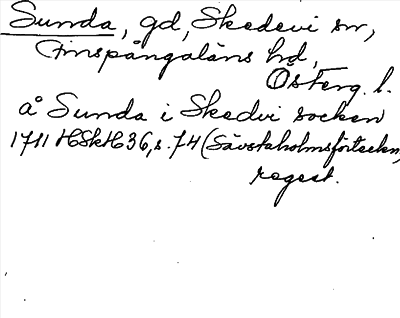 Sunda, gd, Skedevi sn,
Finspångaläns hd,
Österg. l.
å Sunda i Skedvi socken
1711 HSkH 36, s. 74 (Sävstaholmsförteckn,
regest.